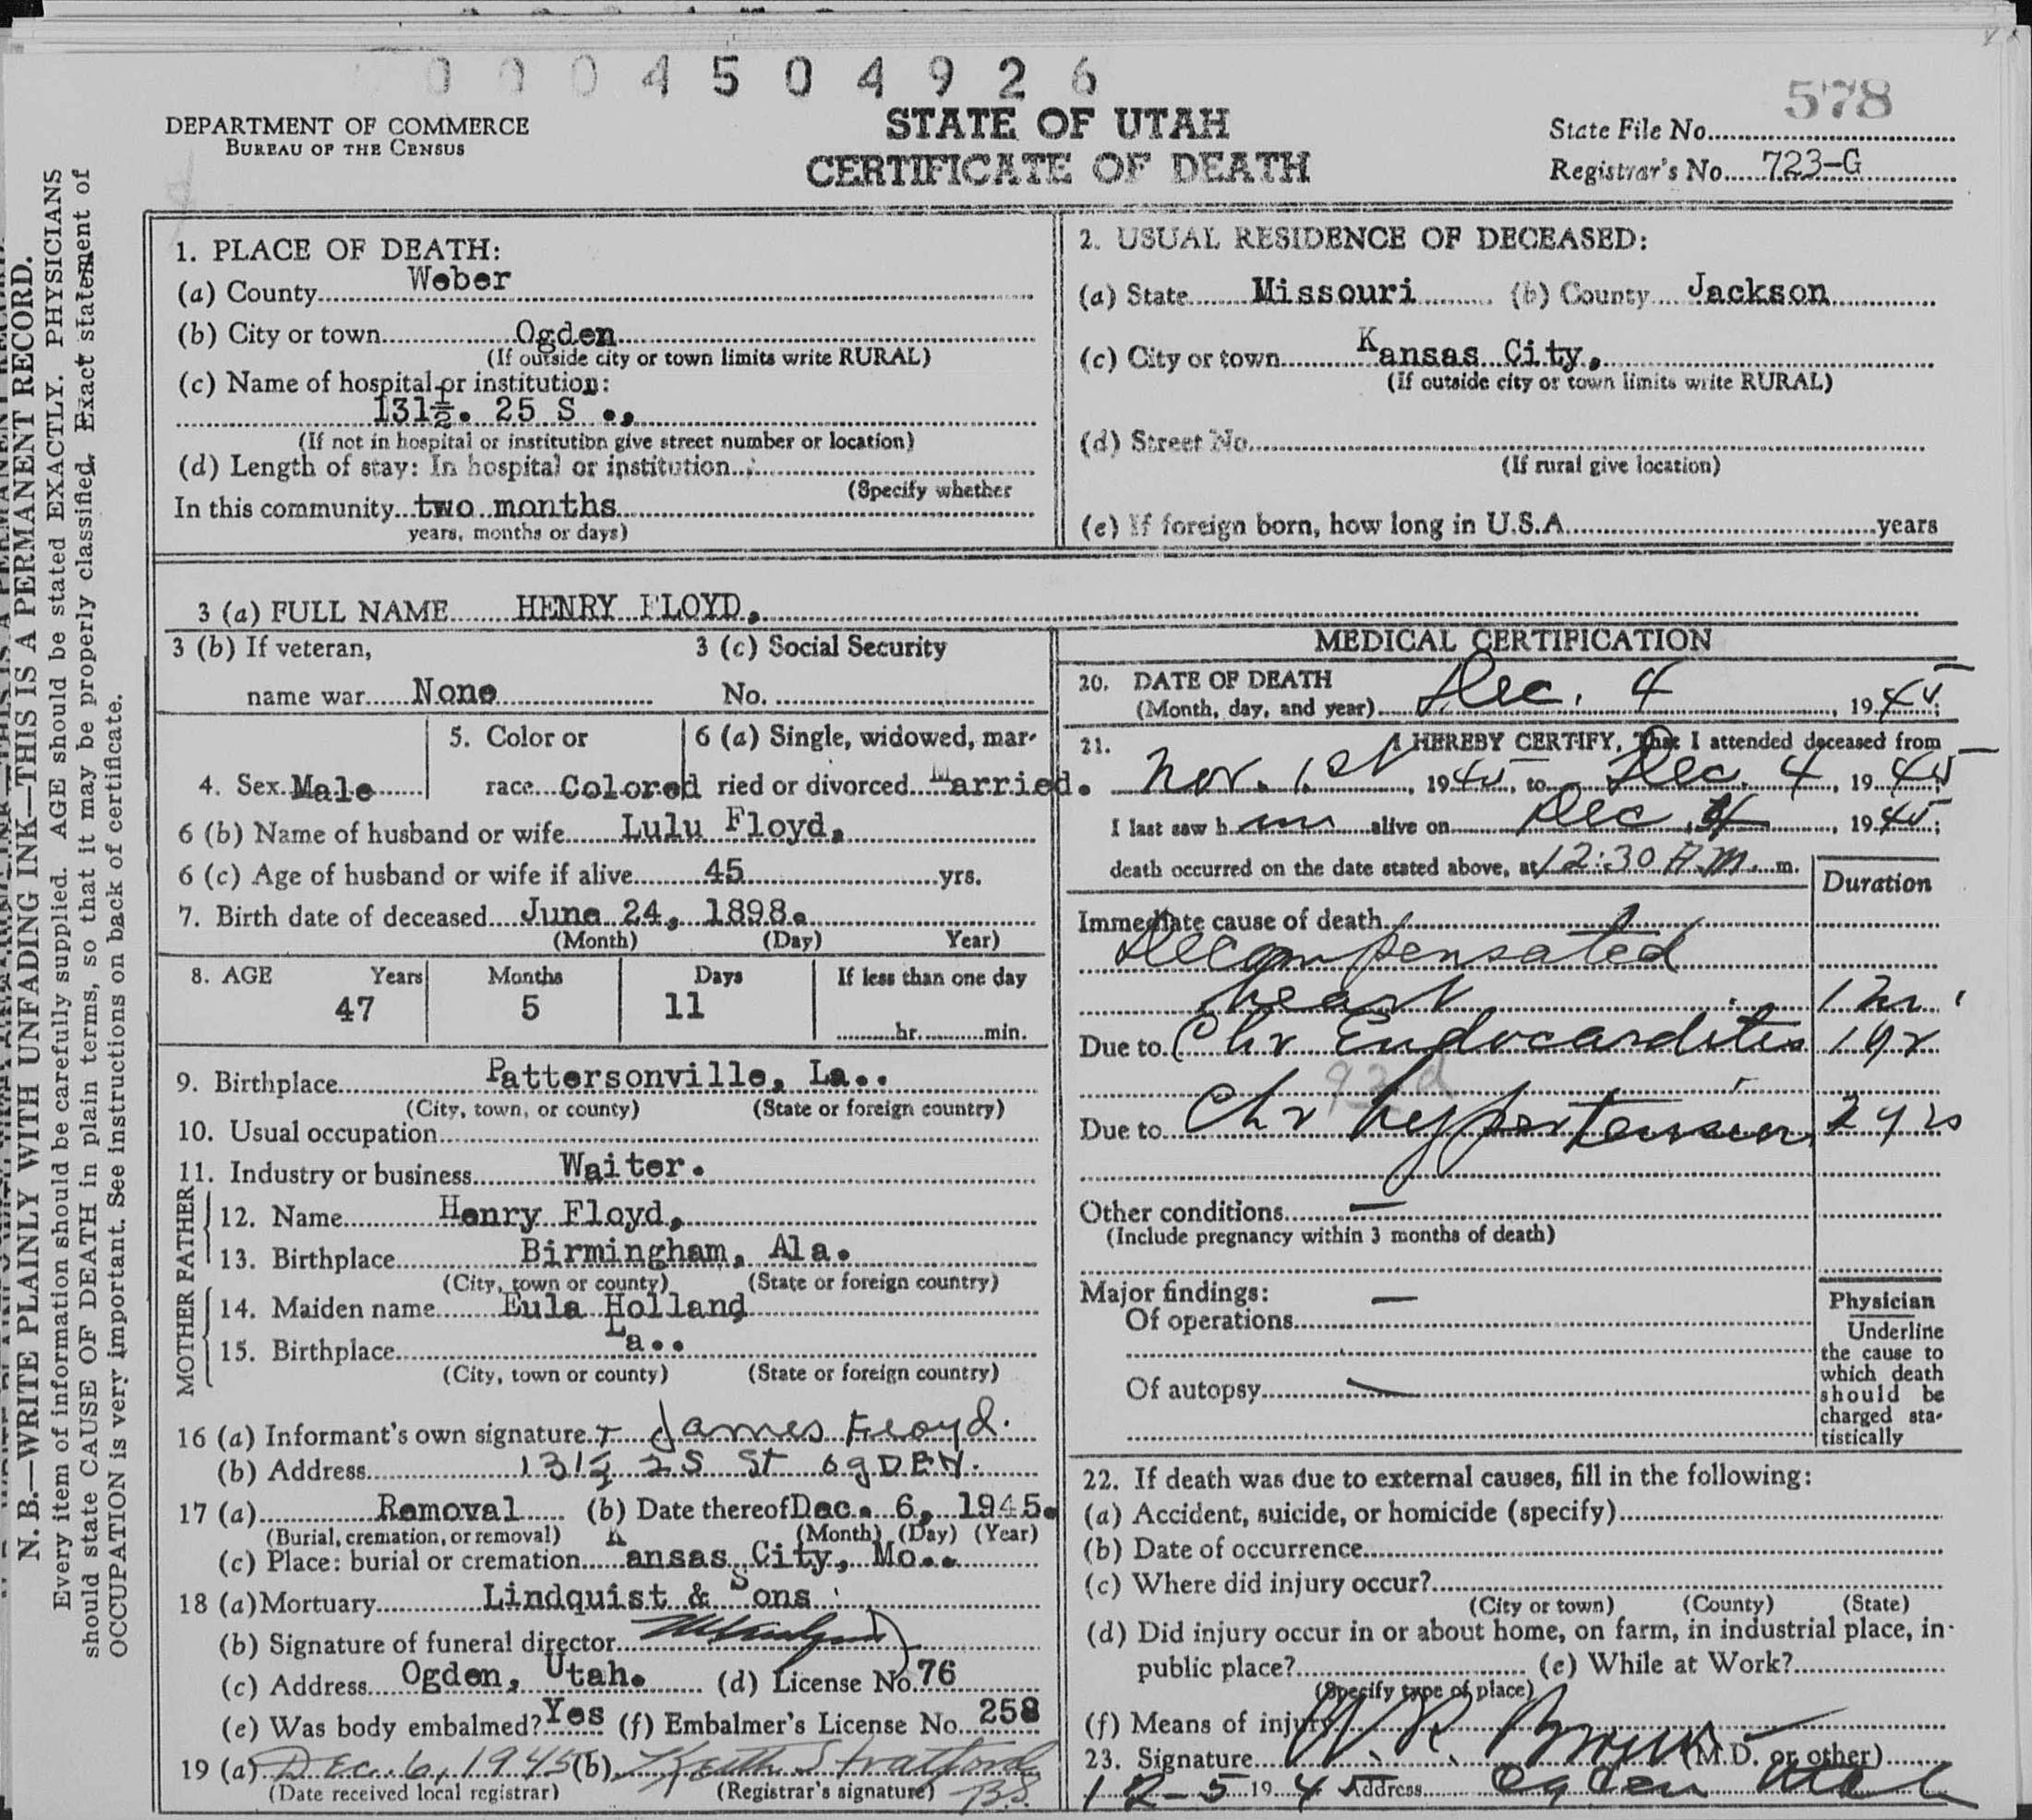 0 0 0 4 5 0 4 9 2 6
578
DEPARTMENT OF COMMERCE
BUREAU OF THE CENSUS
STATE OF UTAH
CERTIFICATE OF DEATH
State File No.
Registrar's No. 723-G
N. B.—WRITE PLAINLY WITH UNFADING INK—THIS IS A PERMANENT RECORD.
Every item of information should be carefully supplied. AGE should be stated EXACTLY. PHYSICIANS
should state CAUSE OF DEATH in plain terms, so that it may be properly classified. Exact statement of
OCCUPATION is very important. See instructions on back of certificate.
1. PLACE OF DEATH:
(a) County Weber
(b) City or town Ogden
(If outside city or town limits write RURAL)
(c) Name of hospital or institution:
131½. 25 S .,
(If not in hospital or institution give street number or location)
(d) Length of stay: In hospital or institution
(Specify whether
In this community two months
years, months or days)
2. USUAL RESIDENCE OF DECEASED:
(a) State Missouri (b) County Jackson
(c) City or town Kansas City,
(If outside city or town limits write RURAL)
(d) Street No.
(If rural give location)
(e) If foreign born, how long in U.S.A. years
3 (a) FULL NAME HENRY FLOYD,
3 (b) If veteran,
name war None
3 (c) Social Security
No.
4. Sex Male
5. Color or
race Colored
6 (a) Single, widowed, mar-
ried or divorced Married.
6 (b) Name of husband or wife Lulu Floyd,
6 (c) Age of husband or wife if alive 45 yrs.
7. Birth date of deceased June 24, 1898.
(Month) (Day) Year)
8. AGE Years Months Days If less than one day
47 5 11 hr. min.
9. Birthplace Pattersonville, La..
(City, town, or county) (State or foreign country)
10. Usual occupation
11. Industry or business Waiter.
FATHER
12. Name Henry Floyd,
13. Birthplace Birmingham, Ala.
(City, town or county) (State or foreign country)
MOTHER
14. Maiden name Eula Holland
15. Birthplace La..
(City, town or county) (State or foreign country)
16 (a) Informant's own signature James Floyd.
(b) Address 131½ 25 St OgDEN.
17 (a) Removal (b) Date thereof Dec. 6, 1945.
(Burial, cremation, or removal) (Month) (Day) (Year)
(c) Place: burial or cremation Kansas City, Mo..
18 (a) Mortuary Lindquist & Sons
(b) Signature of funeral director
(c) Address Ogden, Utah. (d) License No. 76
(e) Was body embalmed? Yes (f) Embalmer's License No. 258
19 (a) Dec. 6, 1945 (b) Keith Stratford
(Date received local registrar) (Registrar's signature) BS.
MEDICAL CERTIFICATION
20. DATE OF DEATH
(Month, day, and year) Dec. 4, 1945;
21. I HEREBY CERTIFY, That I attended deceased from
Nov. 1st, 1945, to Dec. 4, 1945
I last saw h im alive on Dec. 4, 1945;
death occurred on the date stated above, at 12:30 A.M. m.
Duration
Immediate cause of death
Decompensated
heart 1 hr.
Due to Chr Endocarditis 1 yr
92d
Due to Chr hypertension 2 yrs
Other conditions —
(Include pregnancy within 3 months of death)
Major findings:
Of operations —
Of autopsy —
Physician
Underline
the cause to
which death
should be
charged sta-
tistically
22. If death was due to external causes, fill in the following:
(a) Accident, suicide, or homicide (specify)
(b) Date of occurrence
(c) Where did injury occur?
(City or town) (County) (State)
(d) Did injury occur in or about home, on farm, in industrial place, in
public place? (e) While at Work?
(Specify type of place)
(f) Means of injury
23. Signature W R Brown (M.D. or other)
12-5 194 Address Ogden Utah